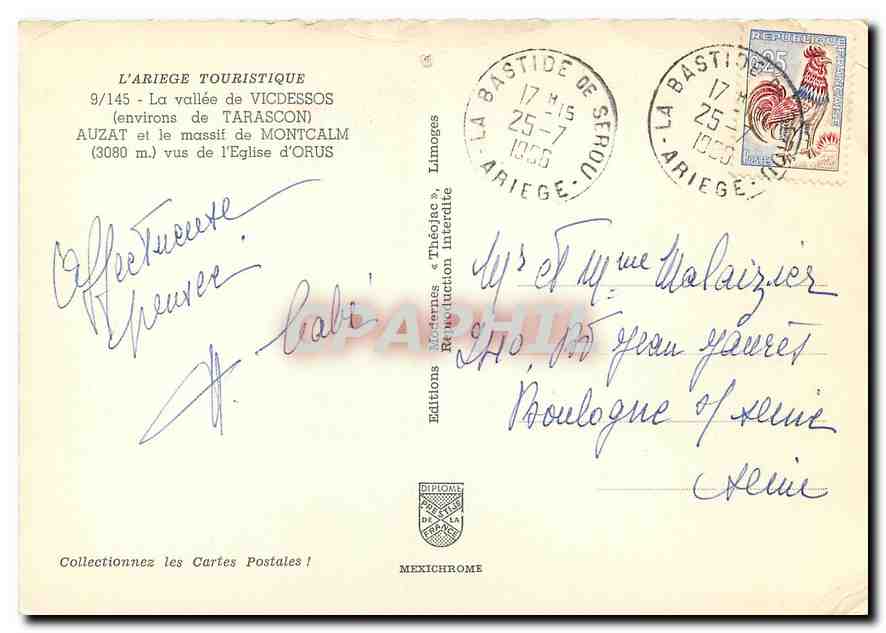 L'ARIEGE TOURISTIQUE
9/145 - La vallée de VICDESSOS
(environs de TARASCON)
AUZAT et le massif de MONTCALM
(3080 m.) vus de l'Eglise d'ORUS
Affectueuse
pensée
Editions Modernes « Théojac », Limoges
Reproduction Interdite
LA BASTIDE DE SEROU
17 H 15
25-7
1966
- ARIEGE -
LA BASTIDE DE SEROU
17 H
25-7
1966
- ARIEGE -
REPUBLIQUE
FRANCAISE
0,25
POSTES
Mr et Mme Malaizier
240, Bd Jean Jaurès
Boulogne s/ Seine
Seine
CPAPHIL
DIPLOME
PRESTIGE
DE LA
FRANCE
Collectionnez les Cartes Postales !
MEXICHROME